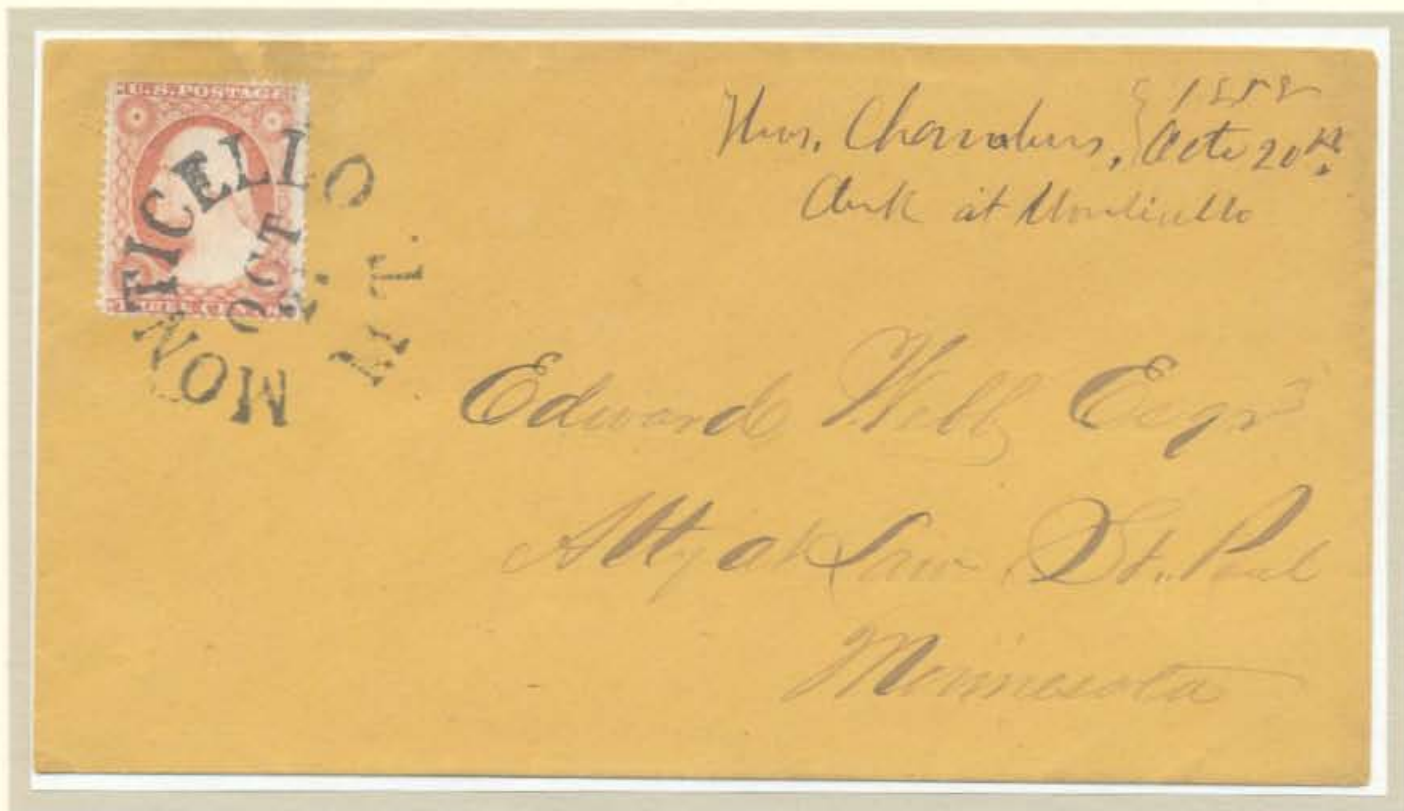 U.S. POSTAGE
THREE CENTS
MONTICELLO M.T.
OCT
Thos. Chambers, { 1858
Octo 20th,
Clerk at Monticello
Edward Webb Esqr
Atty at Law St. Paul
Minnesota